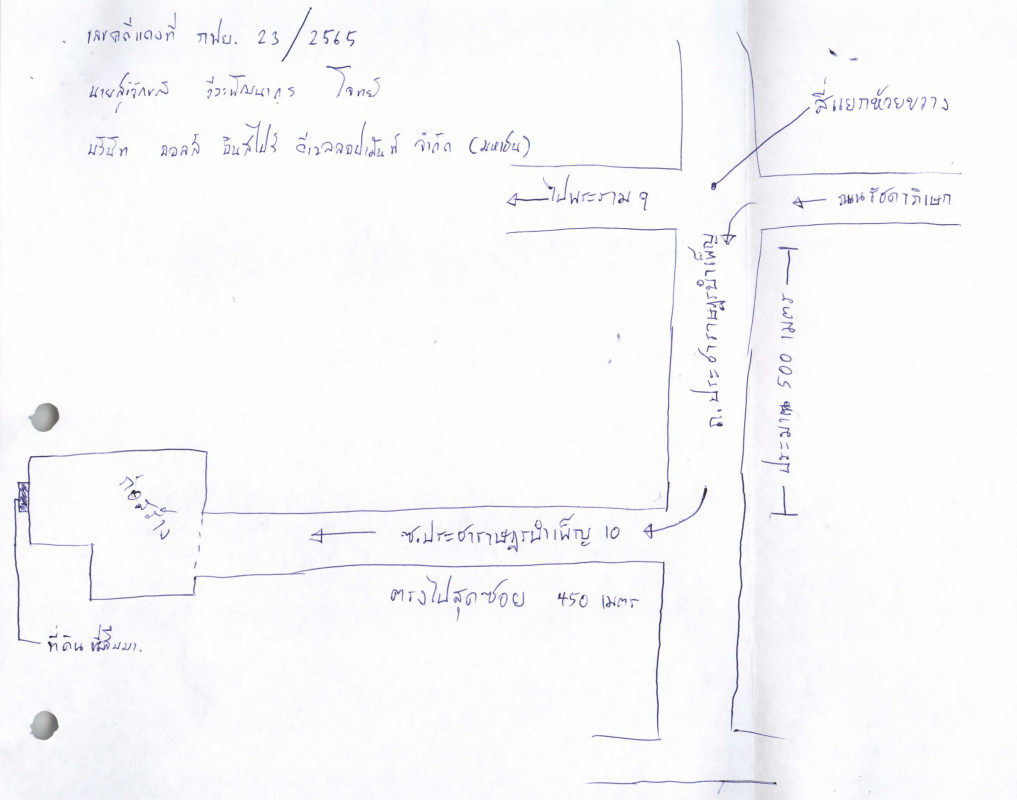 เลขคดีแดงที่ กฟย. 23/2565
โจทย์
บริษัท ออลล์ อินสไปร์ ดีเวลลอปเม้นท์ จำกัด (มหาชน)
สี่แยกห้วยขวาง
ไปพระราม ๙
ถนนรัชดาภิเษก
ถ.ประชาราษฎร์บำเพ็ญ
ประมาณ 500 เมตร
ก่อสร้าง
ซ.ประชาราษฎรบำเพ็ญ 10
ตรงไปสุดซอย 450 เมตร
ที่ดิน